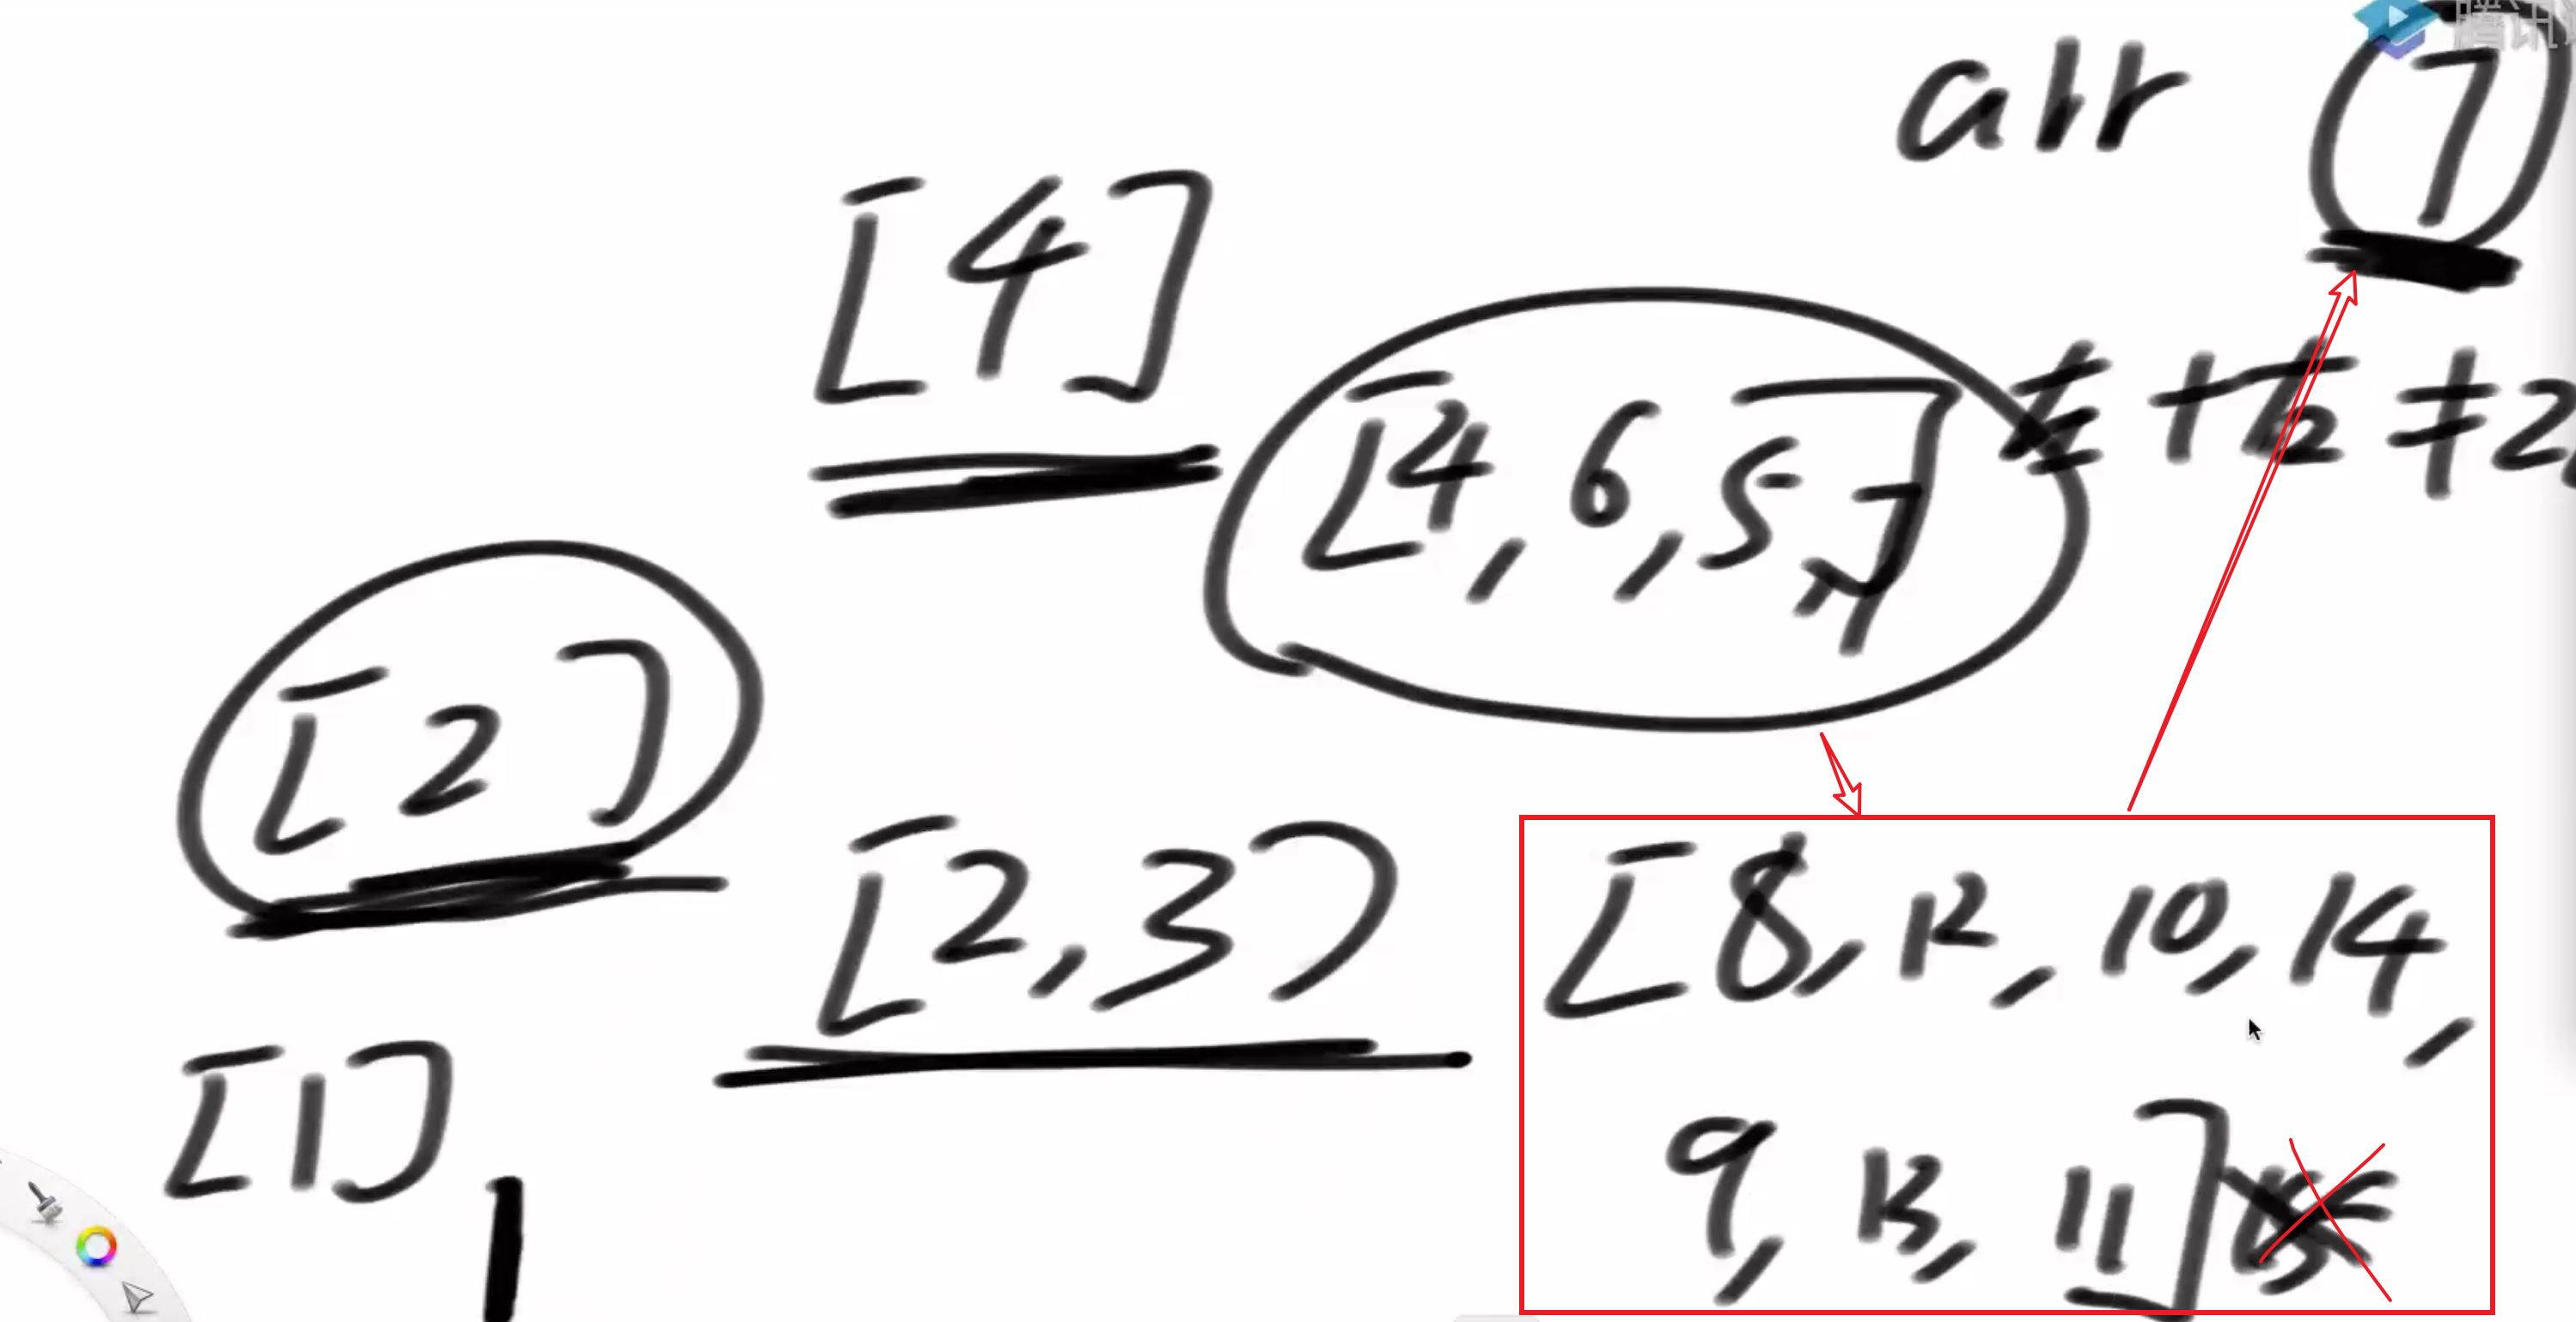 arr 7
[4]
[4, 6, 5, 7]
左 + 右 ≠ 2
[2]
[2, 3)
[8, 12, 10, 14,
9, 13, 11]
[1]
腾讯